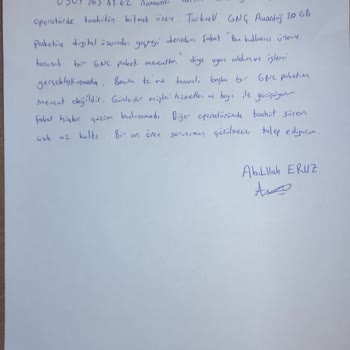 numaralı
operatörde taahhütün bitmek üzere Turkcell GNÇ Avantaj 20 GB
Paketine digital üzerinden geçmeyi denedim fakat "Bu kullanıcı üzerine
tanımlı bir GNC paketi mevcuttur." diye uyarı aldım ve işlemi
gerçekleştiremedim. Benim tc'me tanımlı başka bir GNC paketim
mevcut değildir. Günlerdir müşteri hizmetleri ve bayi ile görüşüyorum
fakat hiçbir çözüm bulunamadı. Diğer operatörümde taahüt sürem
çok az kaldı. Bir an önce sorunumun çözülmesini talep ediyorum.
Abdullah ERUZ